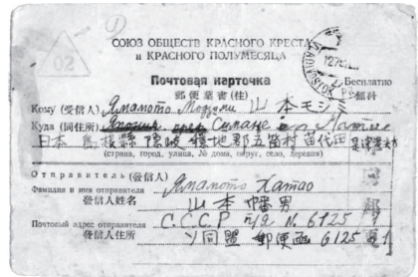 СОЮЗ ОБЩЕСТВ КРАСНОГО КРЕСТА
и КРАСНОГО ПОЛУМЕСЯЦА
02
Почтовая карточка
郵便葉書(往)
Бесплатно
無料
Кому (受信人) Ямамото Модзими 山本モジミ
Куда (同住所) Япония Симане
日本 島根縣 隠岐 郡五箇村苗代田
(страна, город, улица, № дома, округ, село, деревня)
Отправитель (發信人)
Фамилия и имя отправителя Ямамото Хатао
發信人姓名 山本幡男
Почтовый адрес отправителя С.С.С.Р п/я. № 6125
發信人住所 ソ同盟 郵便函 6125